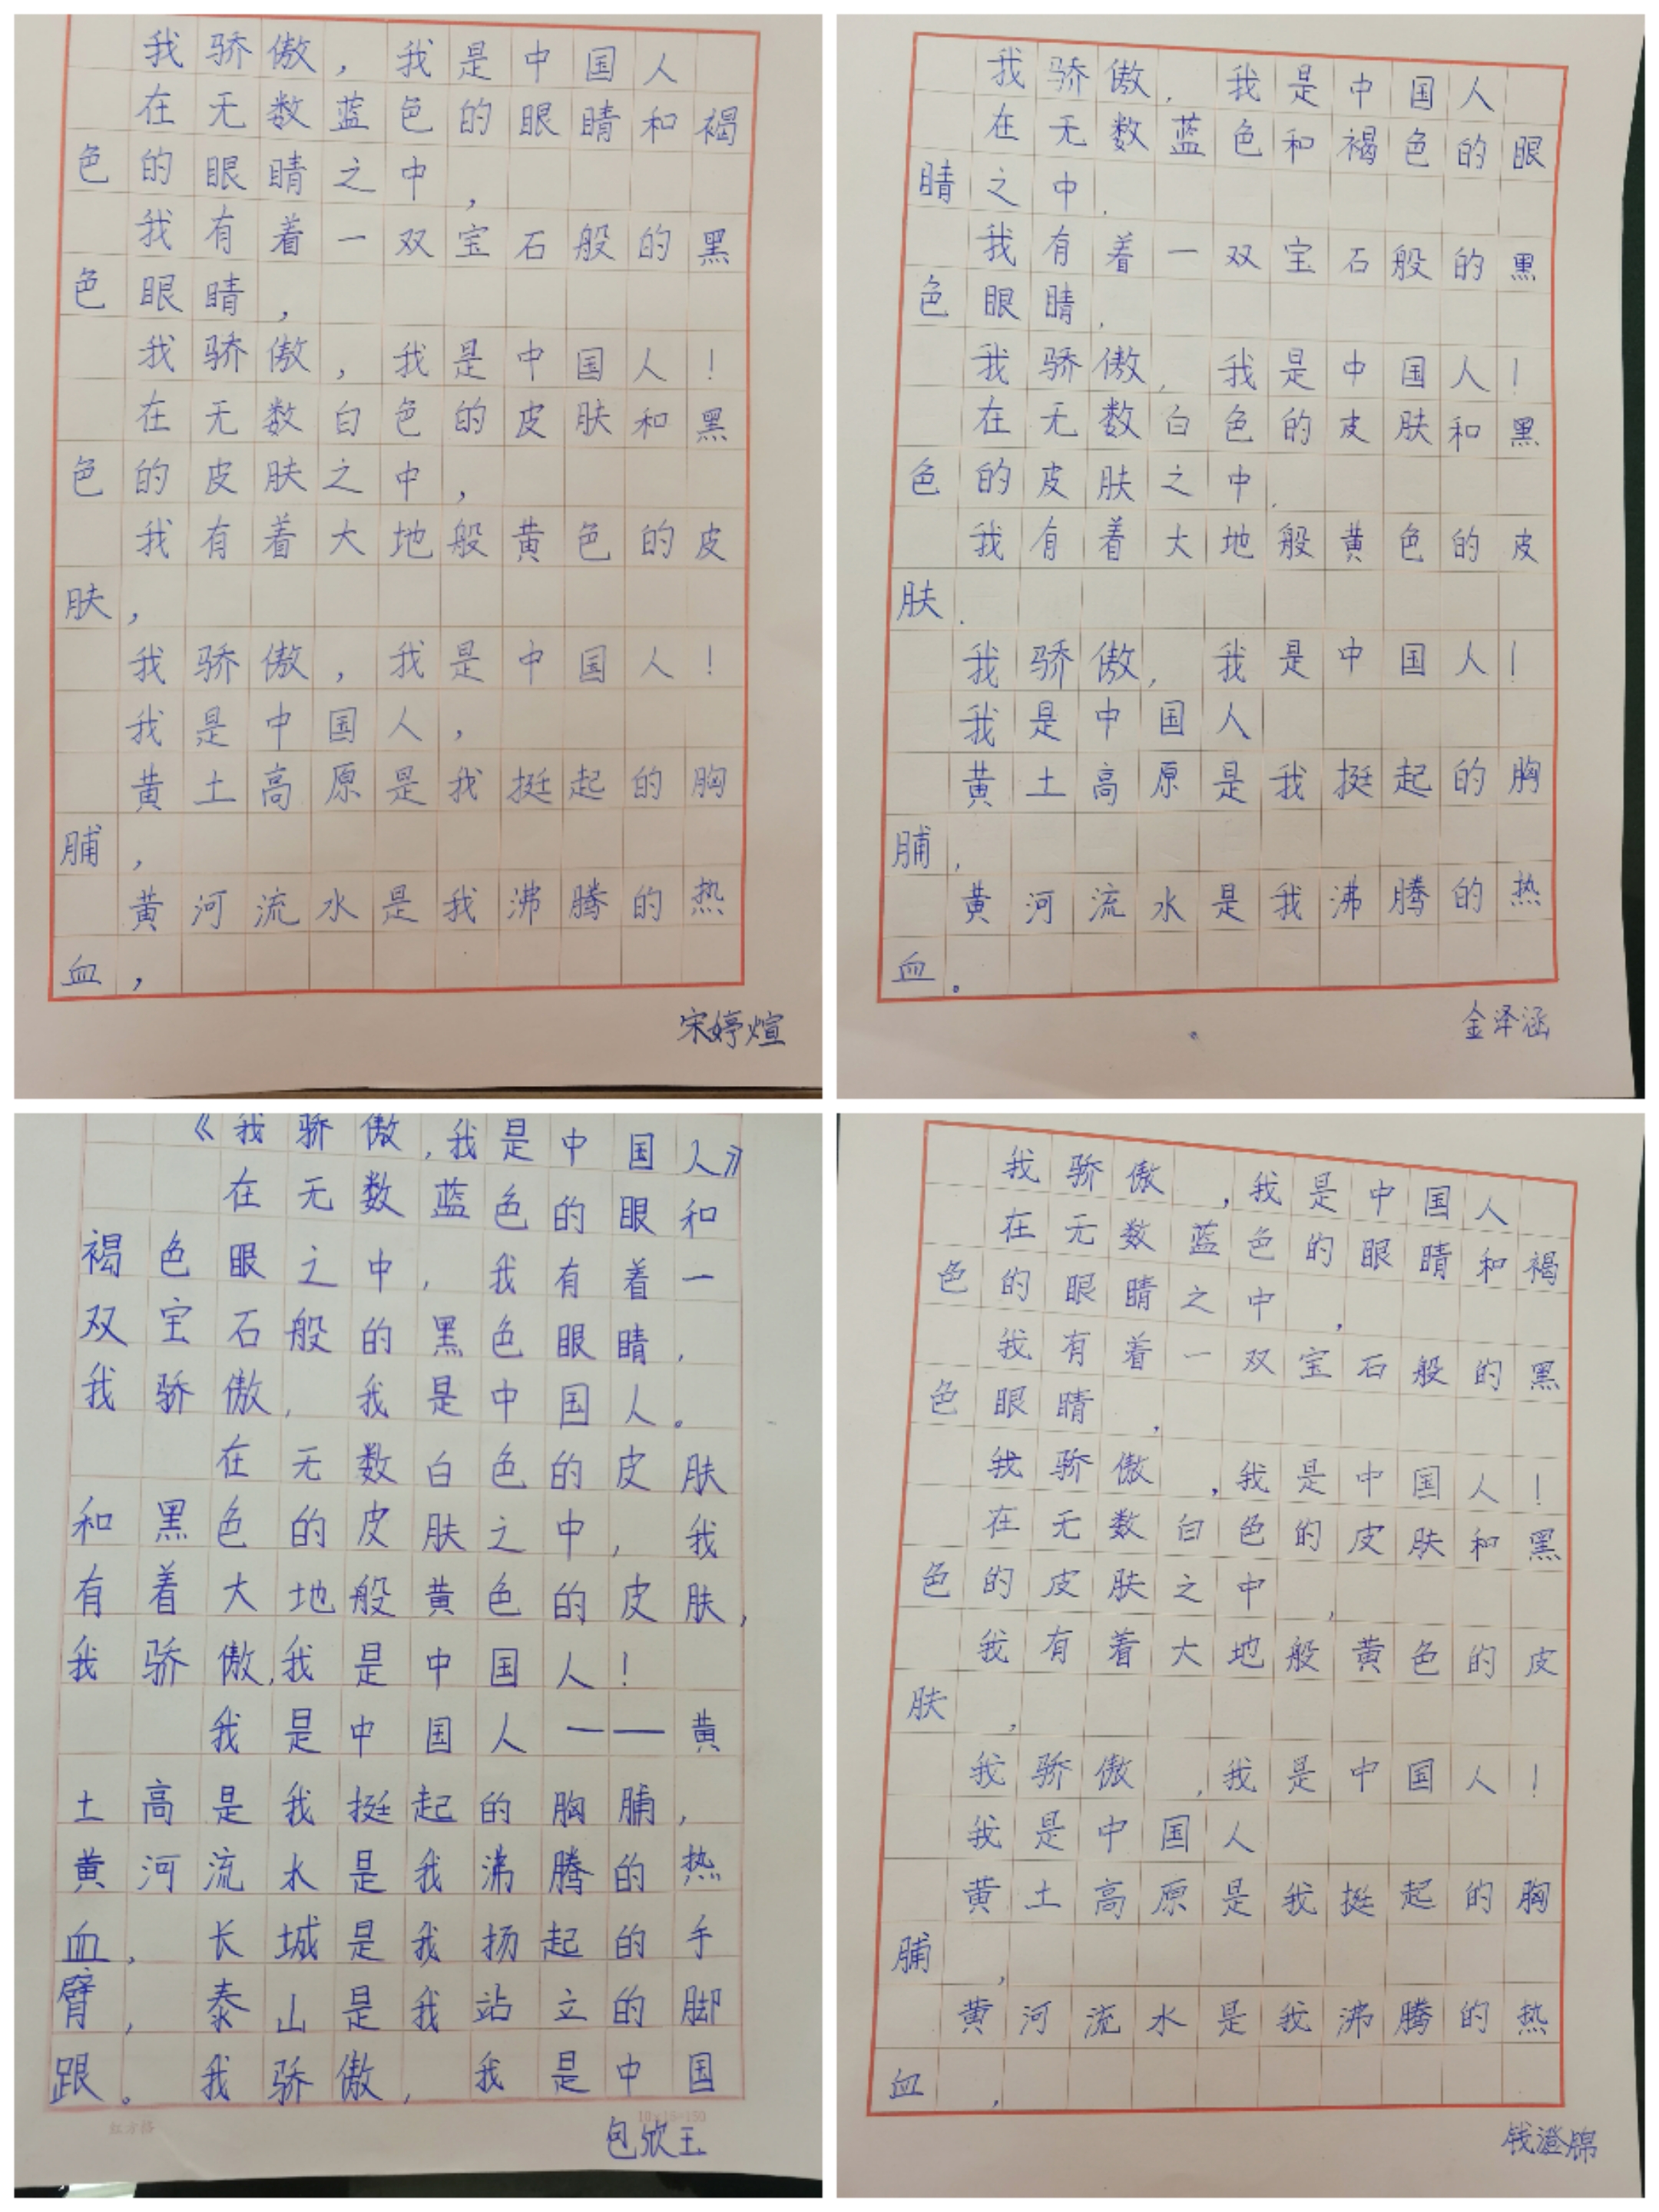 我骄傲，我是中国人
在无数蓝色的眼睛和褐
色的眼睛之中，
我有着一双宝石般的黑
色眼睛，
我骄傲，我是中国人！
在无数白色的皮肤和黑
色的皮肤之中，
我有着大地般黄色的皮
肤，
我骄傲，我是中国人！
我是中国人，
黄土高原是我挺起的胸
脯，
黄河流水是我沸腾的热
血，
宋婷煊
我骄傲，我是中国人
在无数蓝色和褐色的眼
睛之中，
我有着一双宝石般的黑
色眼睛，
我骄傲，我是中国人！
在无数白色的皮肤和黑
色的皮肤之中，
我有着大地般黄色的皮
肤，
我骄傲，我是中国人！
我是中国人
黄土高原是我挺起的胸
脯，
黄河流水是我沸腾的热
血。
金泽涵
《我骄傲，我是中国人》
在无数蓝色的眼和
褐色眼之中，我有着一
双宝石般的黑色眼睛，
我骄傲，我是中国人。
在无数白色的皮肤
和黑色的皮肤之中，我
有着大地般黄色的皮肤，
我骄傲，我是中国人！
我是中国人——黄
土高是我挺起的胸脯，
黄河流水是我沸腾的热
血，长城是我扬起的手
臂，泰山是我站立的脚
跟。我骄傲，我是中国
红方格
包欣玉
我骄傲，我是中国人
在无数蓝色的眼睛和褐
色的眼睛之中，
我有着一双宝石般的黑
色眼睛，
我骄傲，我是中国人！
在无数白色的皮肤和黑
色的皮肤之中，
我有着大地般黄色的皮
肤，
我骄傲，我是中国人！
我是中国人
黄土高原是我挺起的胸
脯，
黄河流水是我沸腾的热
血，
钱澄锦